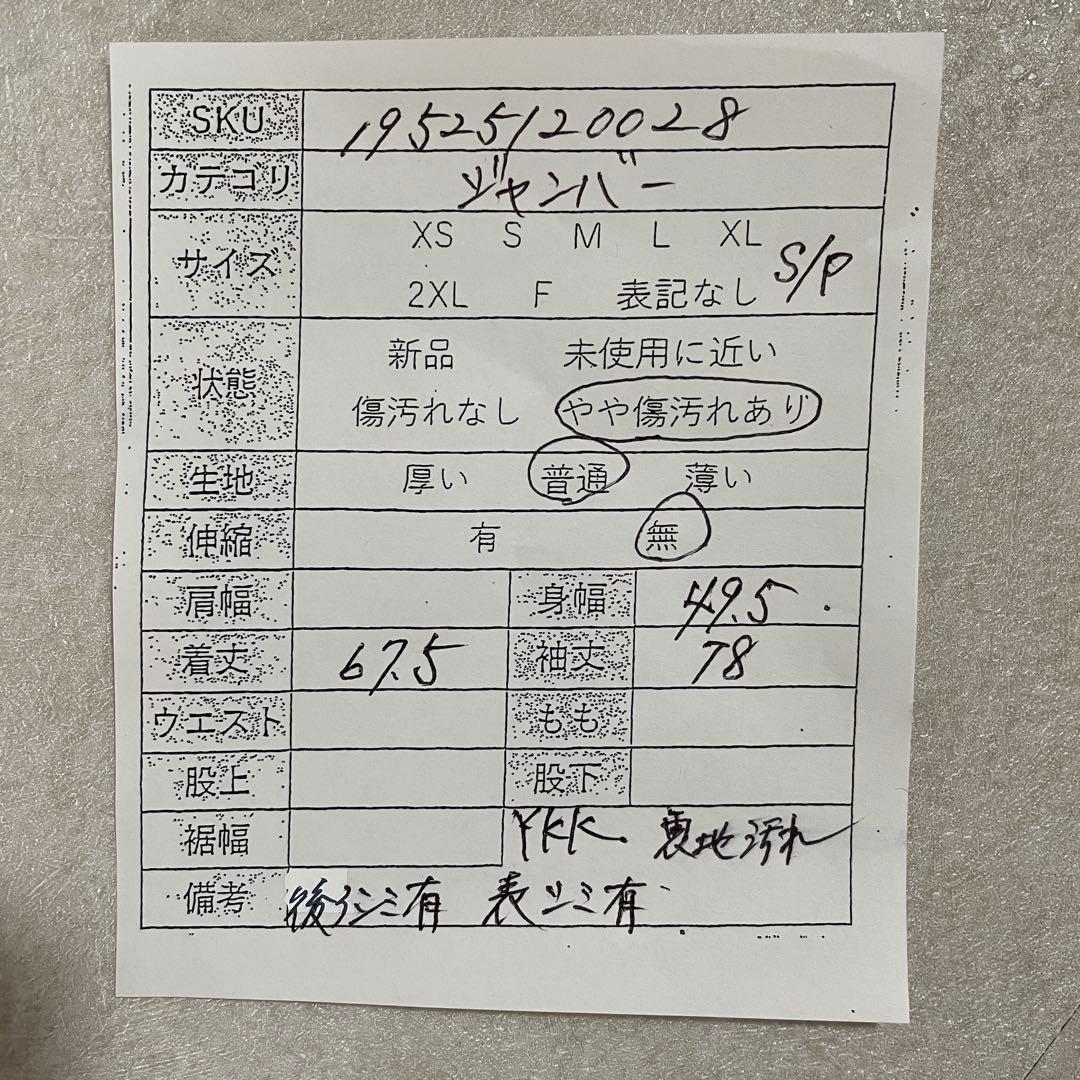 SKU 19525120028
カテゴリ ジャンバー
サイズ XS S M L XL
2XL F 表記なし S/P
状態 新品 未使用に近い
傷汚れなし やや傷汚れあり
生地 厚い 普通 薄い
伸縮 有 無
肩幅 身幅 49.5
着丈 67.5 袖丈 78
ウエスト もも
股上 股下
裾幅 YKK. 裏地汚れ
備考 後 シミ有 表シミ有